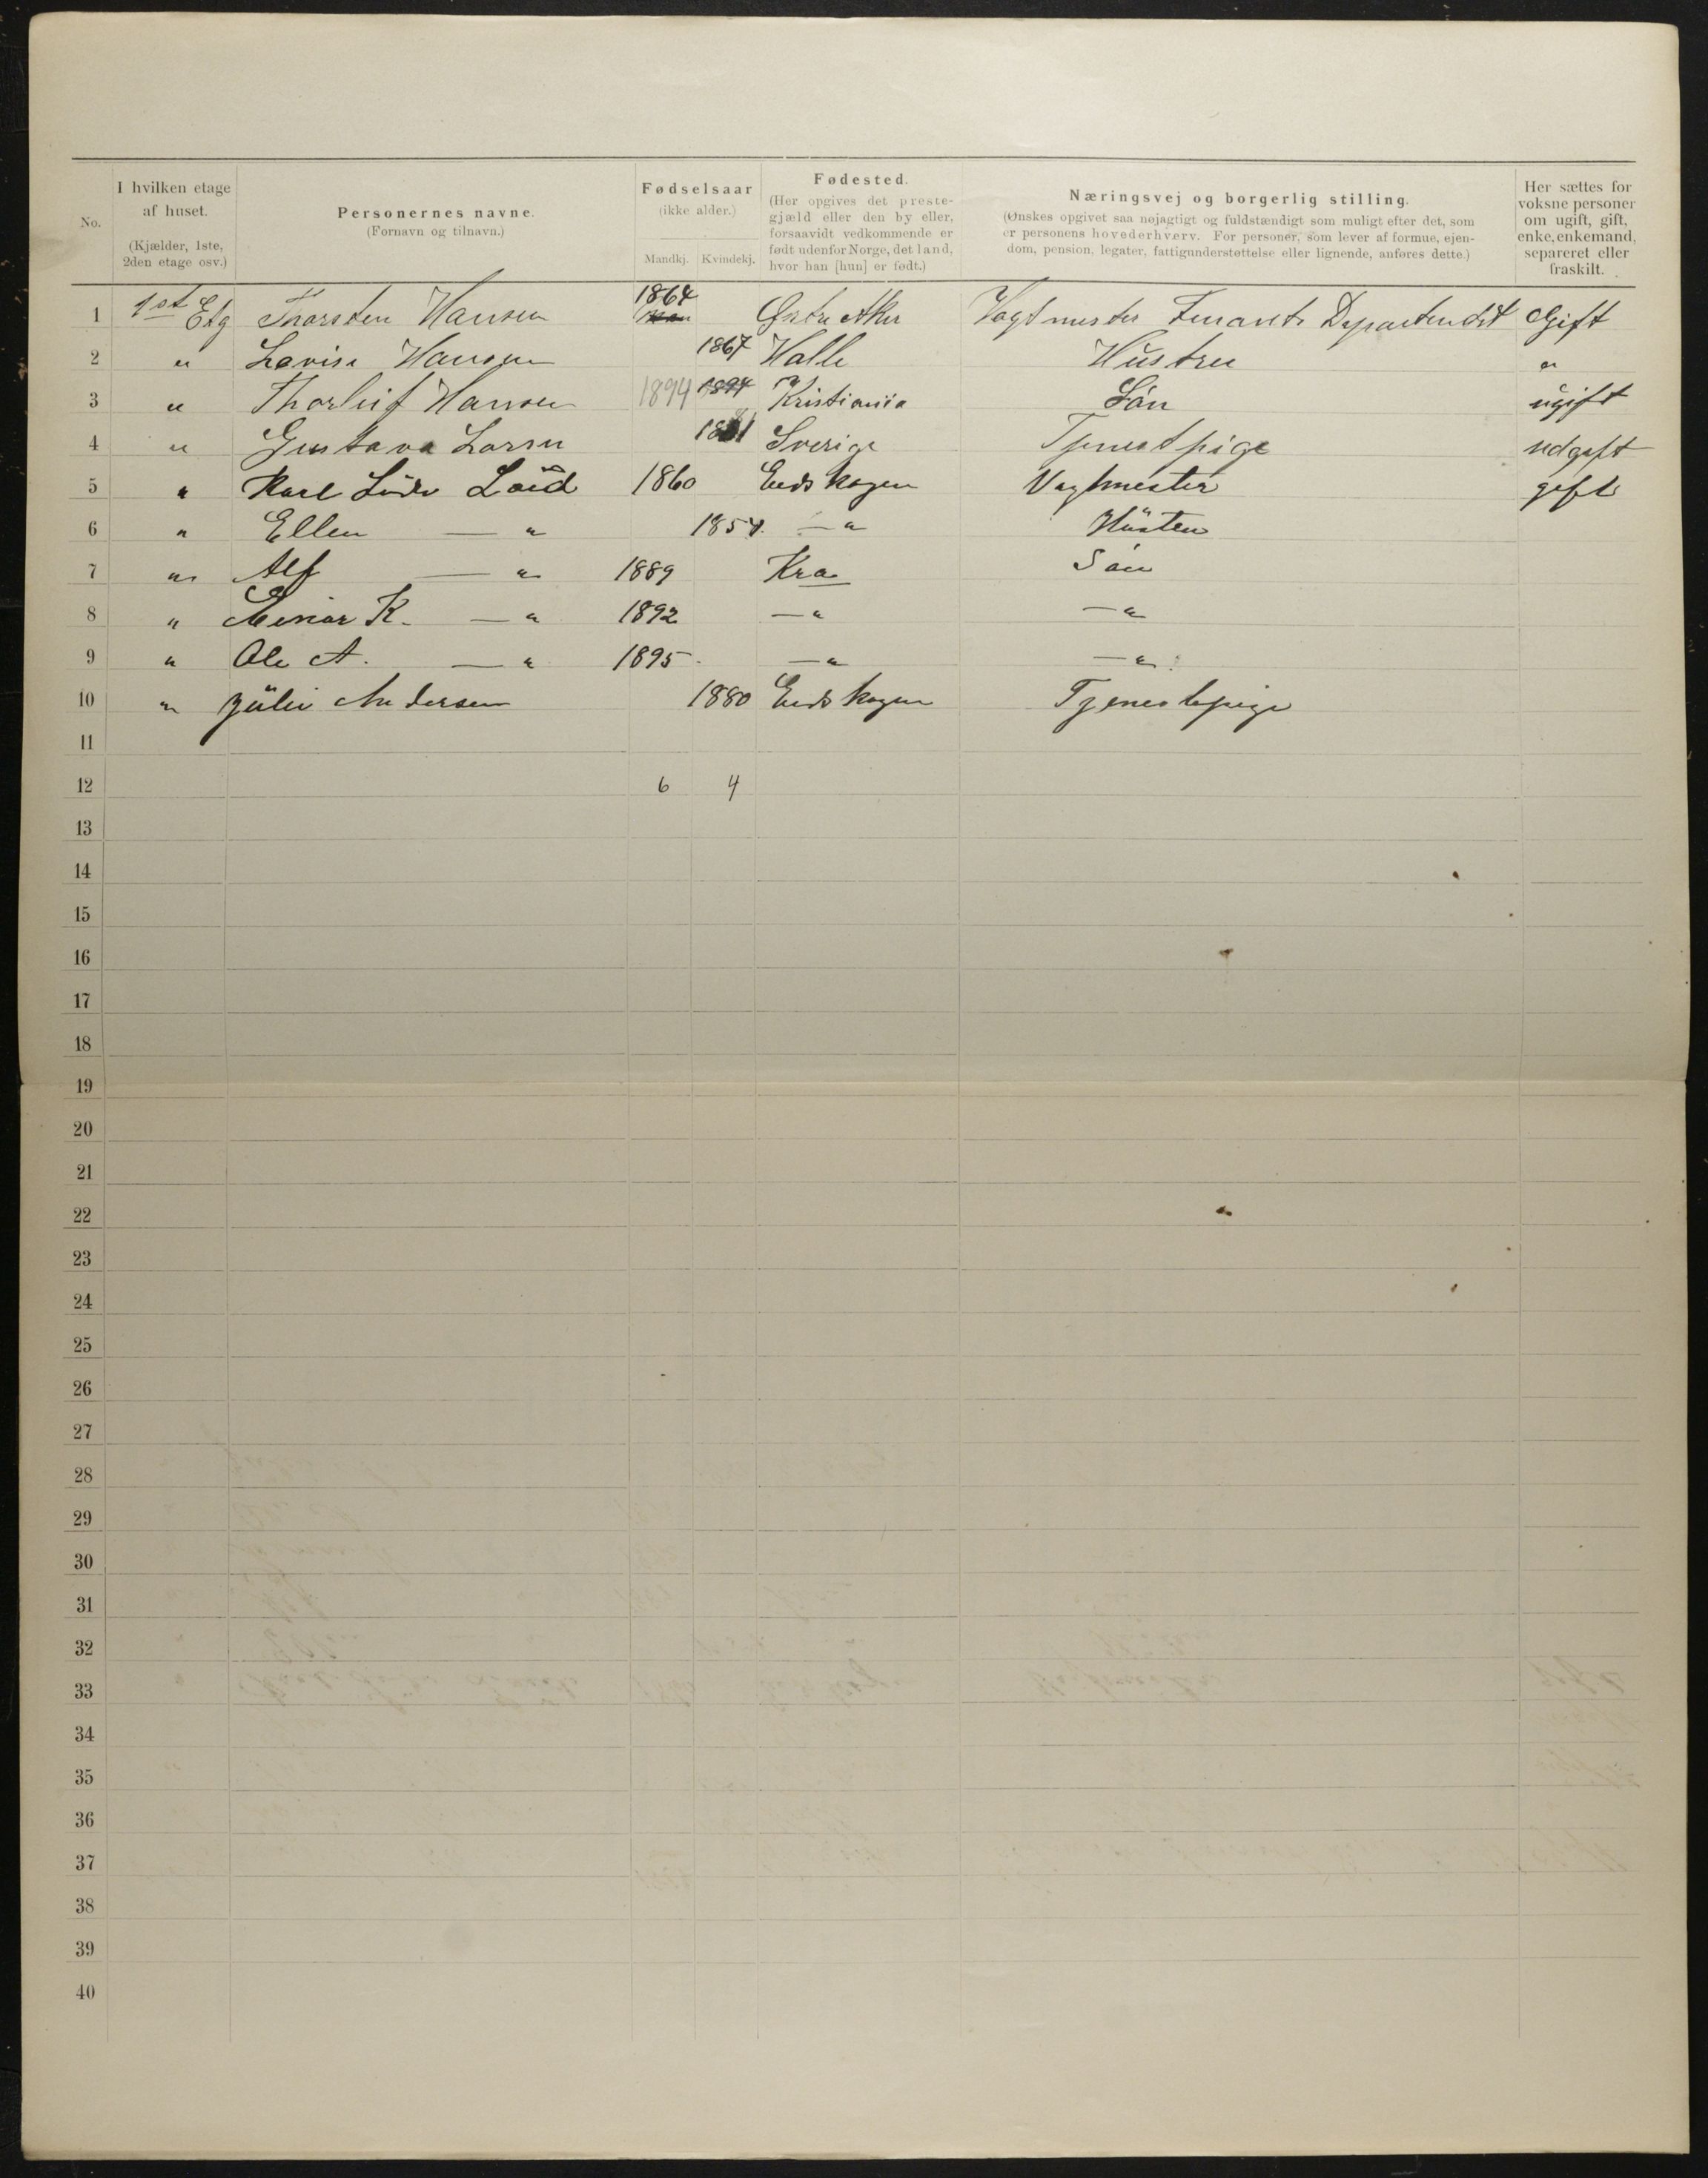 No.
I hvilken etage af huset. (Kjælder, 1ste, 2den etage osv.)
Personernes navne. (Fornavn og tilnavn.)
Fødselsaar (ikke alder.) Mandkj. Kvindekj.
Fødested. (Her opgives det prestegjæld eller den by eller, forsaavidt vedkommende er født udenfor Norge, det land, hvor han [hun] er født.)
Næringsvej og borgerlig stilling. (Ønskes opgivet saa nøjagtigt og fuldstændigt som muligt efter det, som er personens hovederhverv. For personer, som lever af formue, ejendom, pension, legater, fattigunderstøttelse eller lignende, anføres dette.)
Her sættes for voksne personer om ugift, gift, enke, enkemand, separeret eller fraskilt.
1 1st Etg Thorsten Hansen 1864 Østre Aker Vagtmester Finants Departendet Gift
2 " Lovise Hansen 1867 Halle Hustru "
3 " Thorleif Hansen 1894 1894 Kristiania Sön ugift
4 " Gustava Larsen Sverige Tjenestpige
5 " Karl Loed 1860 Eidskogen Vagtmester gift
6 " Ellen — " 1854. — " Hustru
7 " Alf — " 1889 Kra Sön
8 " K. — " 1892 — " — "
9 " Ole A. — " 1895 — " — "
10 " Julie Andersen 1880 Eidskogen Tjenestepige
11
12 6 4
13
14
15
16
17
18
19
20
21
22
23
24
25
26
27
28
29
30
31
32
33
34
35
36
37
38
39
40